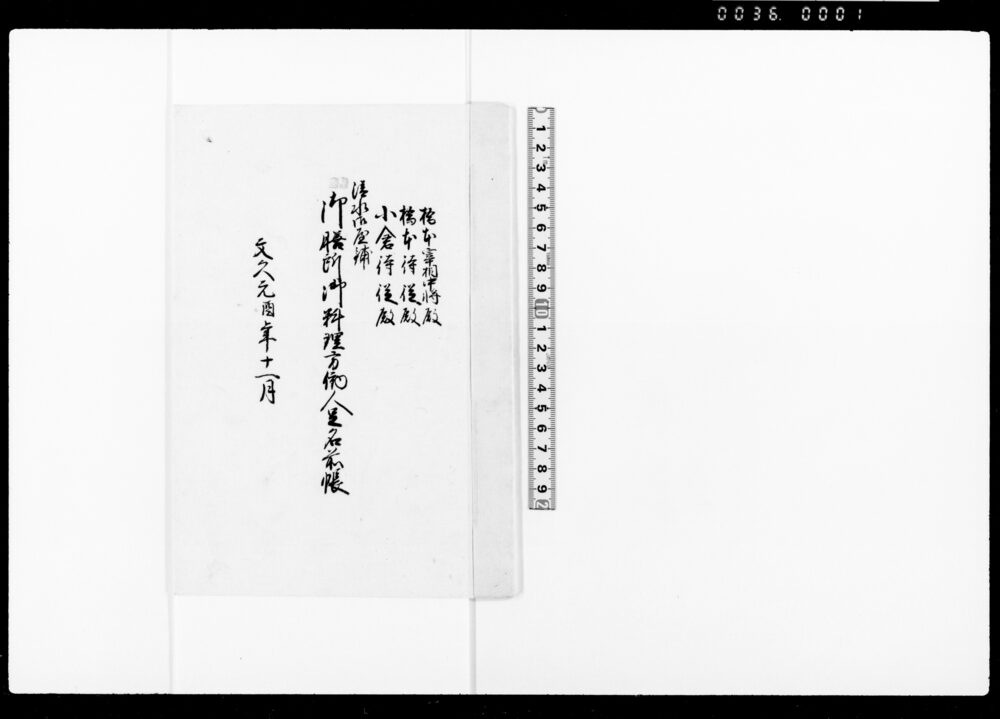 0036. 0001
橋本宰相中将殿
橋本侍従殿
小倉侍従殿
清水御屋鋪
御膳所御料理方働人足名前帳
文久元酉年十一月
1 2 3 4 5 6 7 8 9 10 1 2 3 4 5 6 7 8 9 2